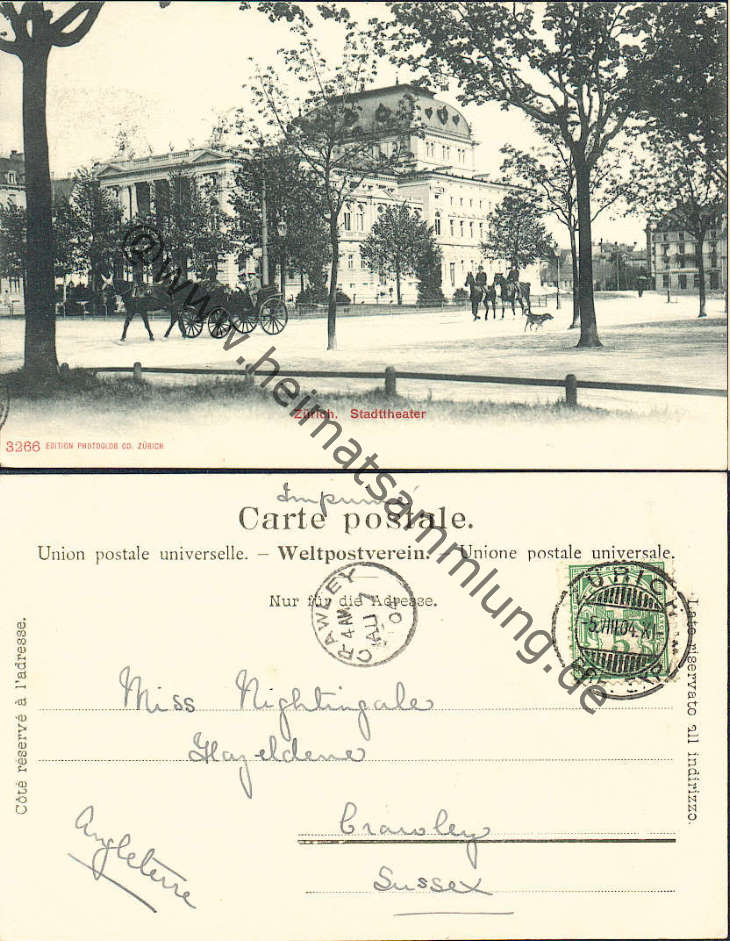 Zürich. Stadttheater
3266 EDITION PHOTOGLOB CO. ZÜRICH
@www.heimatsammlung.de
Imprimé
Carte postale.
Union postale universelle. – Weltpostverein. – Unione postale universale.
Nur für die Adresse.
CRAWLEY
4 AM
AU 7
04
ZÜRICH
-5.VIII.04.XI-
5
Côté réservé à l'adresse.
Lato riservato all indirizzo.
Miss Nightingale
Hazeldene
Crawley
Sussex
Angleterre